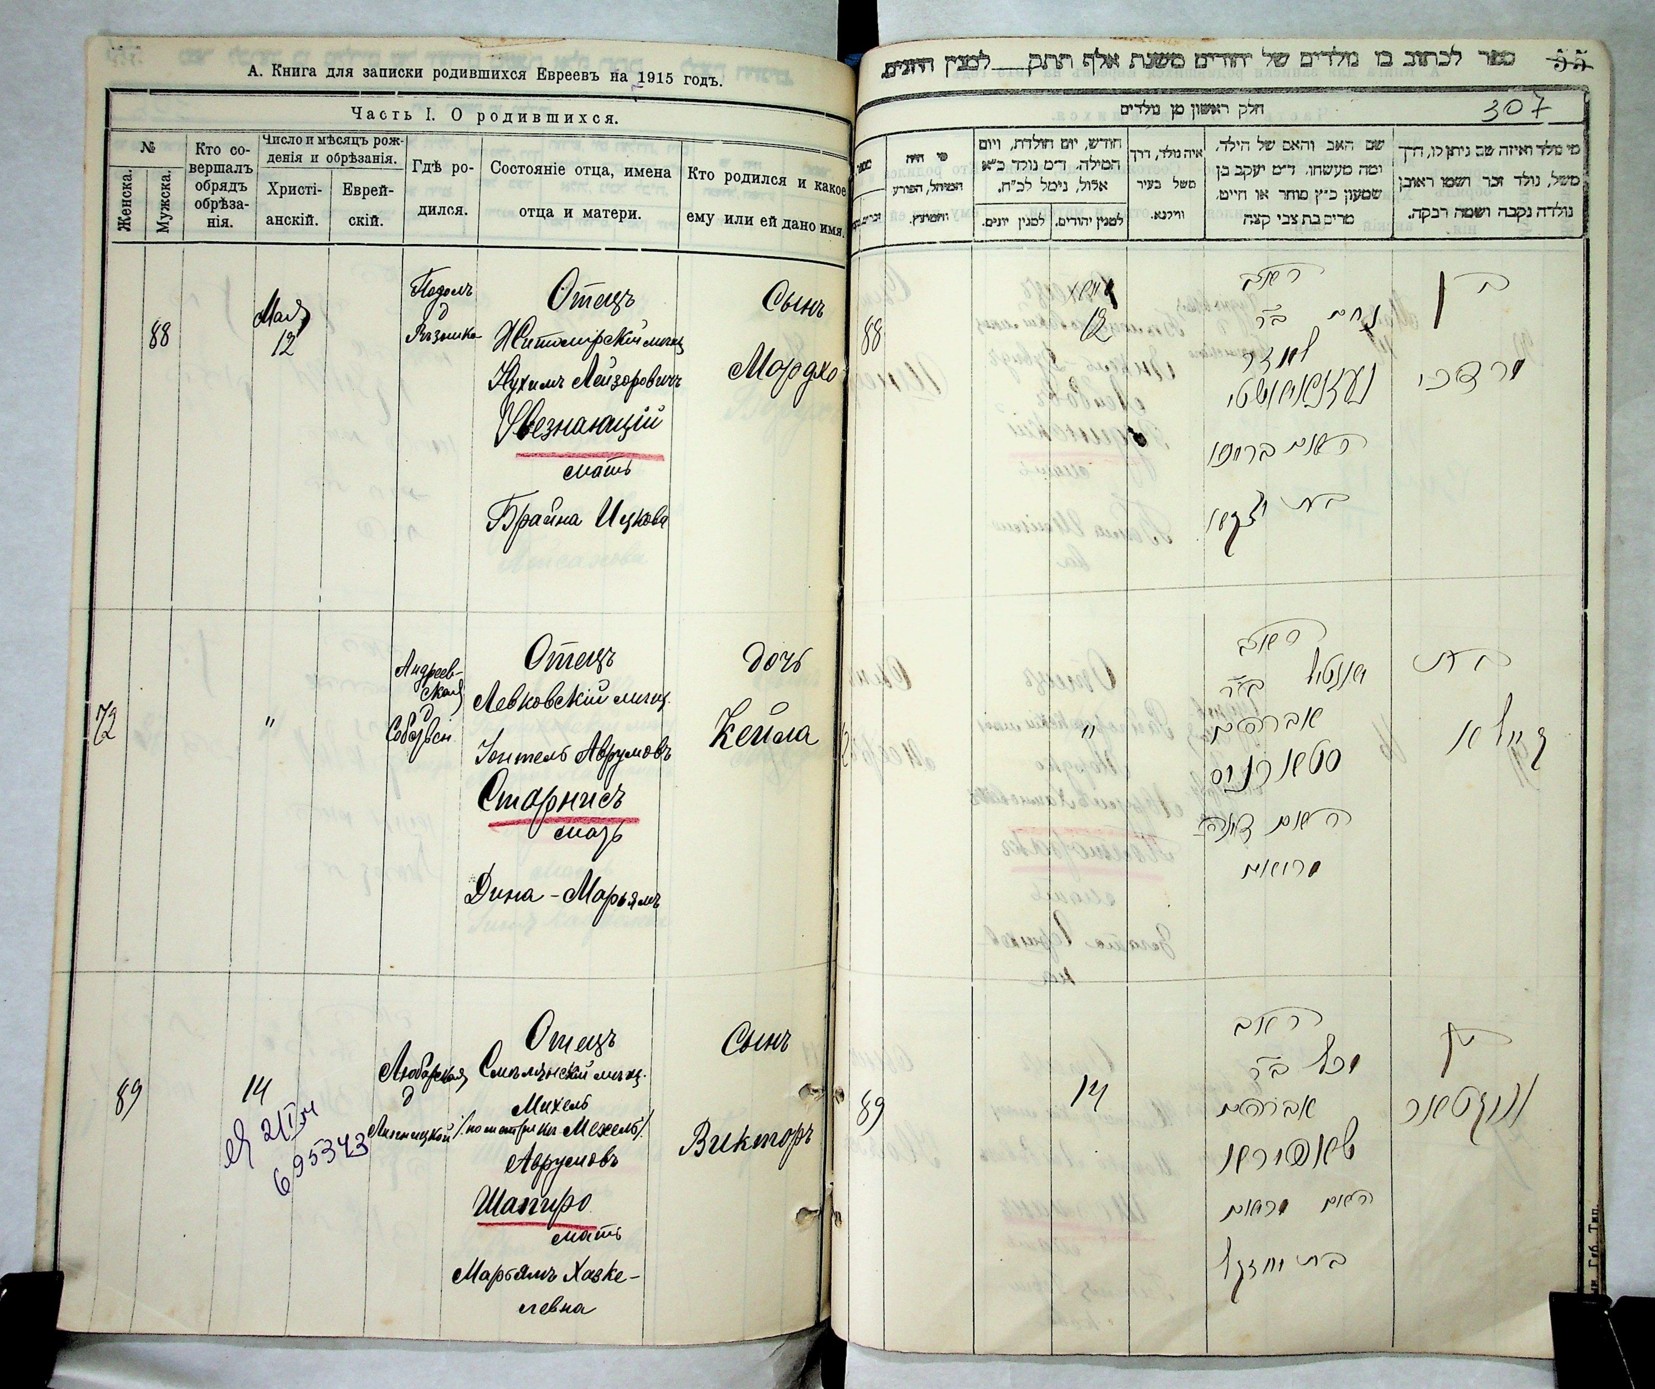 А. Книга для записки родившихся Евреевъ на 1915 годъ.
Часть I. О родившихся.
№
Женска.
Мужска.
Кто со-
вершалъ
обрядъ
обрѣза-
нія.
Число и мѣсяцъ рож-
денія и обрѣзанія.
Христі-
анскій.
Еврей-
скій.
Гдѣ ро-
дился.
Состояніе отца, имена
отца и матери.
Кто родился и какое
ему или ей дано имя.
88
Мая
12
Подолъ
д
Отецъ
Житомірскій мѣщ
Нухимъ Лейзоровичъ
Свезнающій
мать
Брайна Ицкова
Сынъ
Мордхо
72
"
Андреев-
ская
д
Собствен.
Отецъ
Левковскій мѣщ.
Іонтель Аврумовъ
Старнисъ
мать
Дина-Марьямъ
дочь
Кейла
89
14
695343
д
Отецъ
Смѣлянскій мѣщ.
Михель
/по метрикѣ Мехель/.
Аврумовъ
Шапиро
мать
Марьямъ Хазке-
левна
Сынъ
Викторъ
ספר לכתוב בו נולדים של יהודים משנת אלף תתק___למנין היונים.
55
307
חלק ראשון מן נולדים
מי נולד ואיזה שם ניתן לו, דרך
משל, נולד זכר ושמו ראובן
נולדה נקבה ושמה רבקה.
שם האב והאם של הילד,
ומה מעשהו. ד״מ יעקב בן
שמעון כ״ץ סוחר או חיים,
מרים בת צבי קצה
איה נולד, דרך
משל בעיר
ווילנא.
חודש, יום הולדת, ויום
המילה. ד״מ נולד כ״א
אלול, נימל לכ״ח.
למנין יהודים.
למנין יונים.
מי היה
המוהל, הפורע
והמוצץ.
88
12
האב
נחום ב״ר
האם ברוינא
בת יצקא
בן
מרדכי
"
האב
יאנטיל ב״ר
אברהם
סטארניס
האם דינה
מריאם
בת
קיילא
89
14
האב
מכל ב״ר
אברהם
שאפירא
האם מריאם
בת יחזקאל
בן
וויקטאר